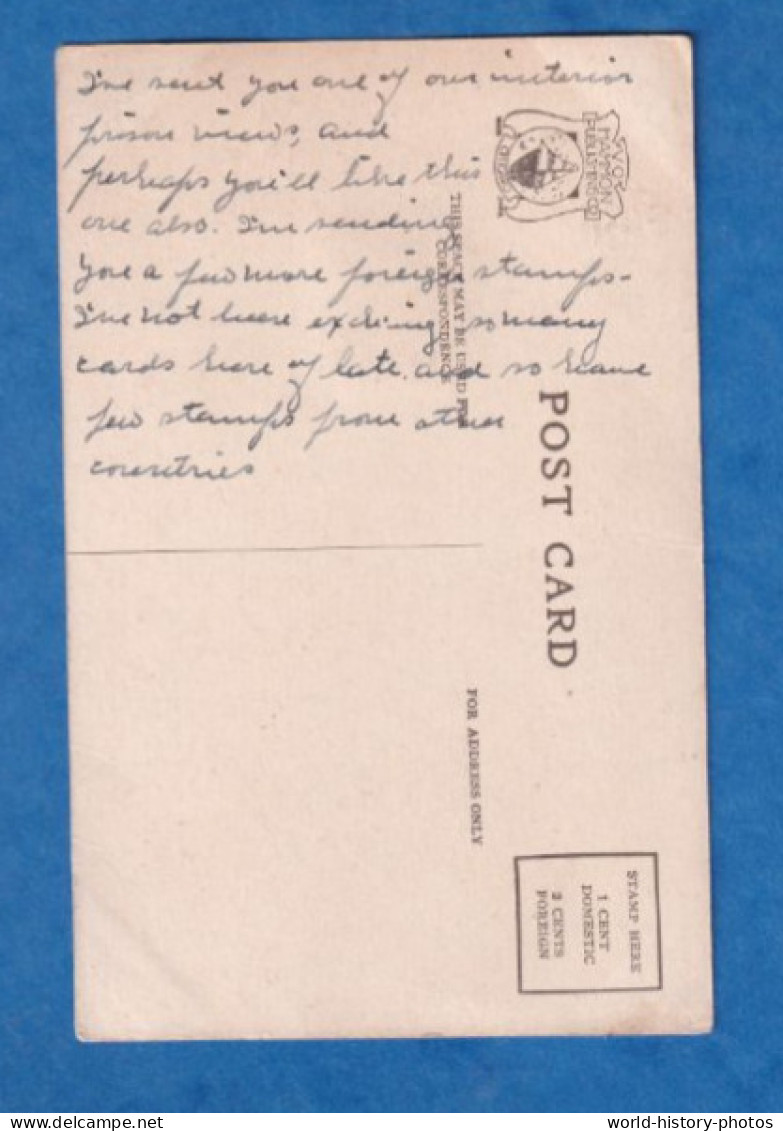 I've sent you one of our interior
prison views, and
perhaps you'll like this
one also. I'm sending
you a few more foreign stamps-
I've not been exching so many
cards here of late, and so have
few stamps from other
countries
V.O.
HAMMON
PUBLISHING CO.
CHICAGO
THIS SPACE MAY BE USED FOR
CORRESPONDENCE
POST CARD
FOR ADDRESS ONLY
STAMP HERE
1 CENT
DOMESTIC
2 CENTS
FOREIGN
world-history-photos